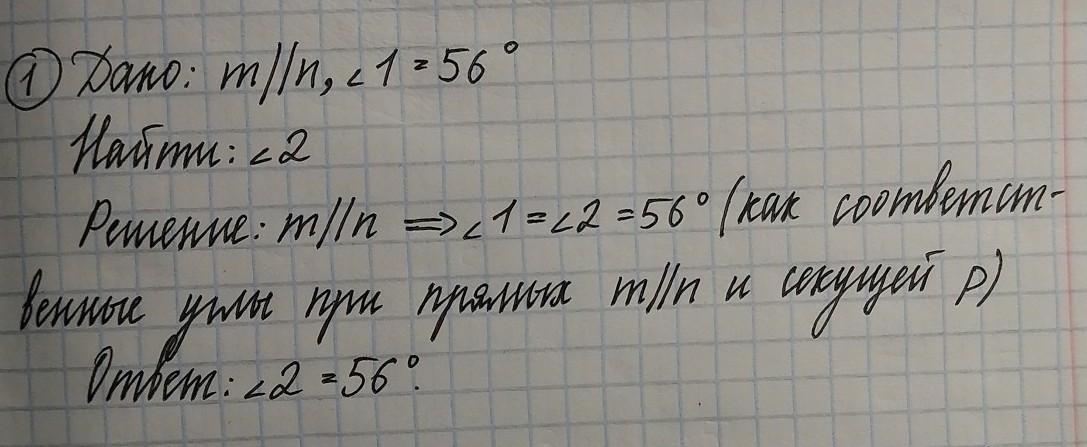 ① Дано: m//n, ∠1 = 56°
Найти: ∠2
Решение: m//n ⇒ ∠1 = ∠2 = 56° (как соответст-
венные углы при прямых m//n и секущей p)
Ответ: ∠2 = 56°.